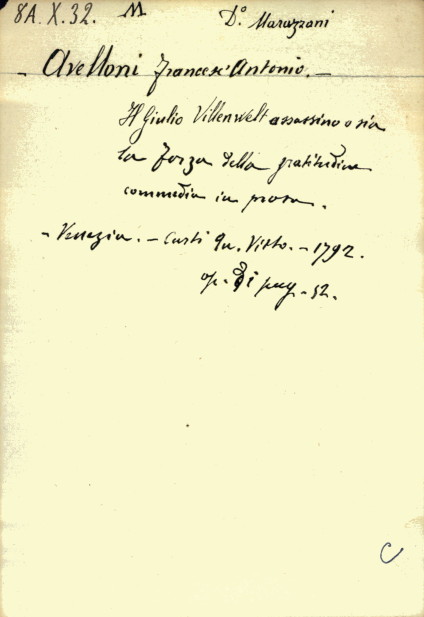 8A. X. 32. M D.º Marazzani
- Avelloni Francesc'Antonio. -
Il Giulio Villenvelt assassino o sia
la forza della gratitudine
commedia in prosa.
- Venezia. - Curti Qu. Vitto. - 1792.
op. di pag. 52.
C